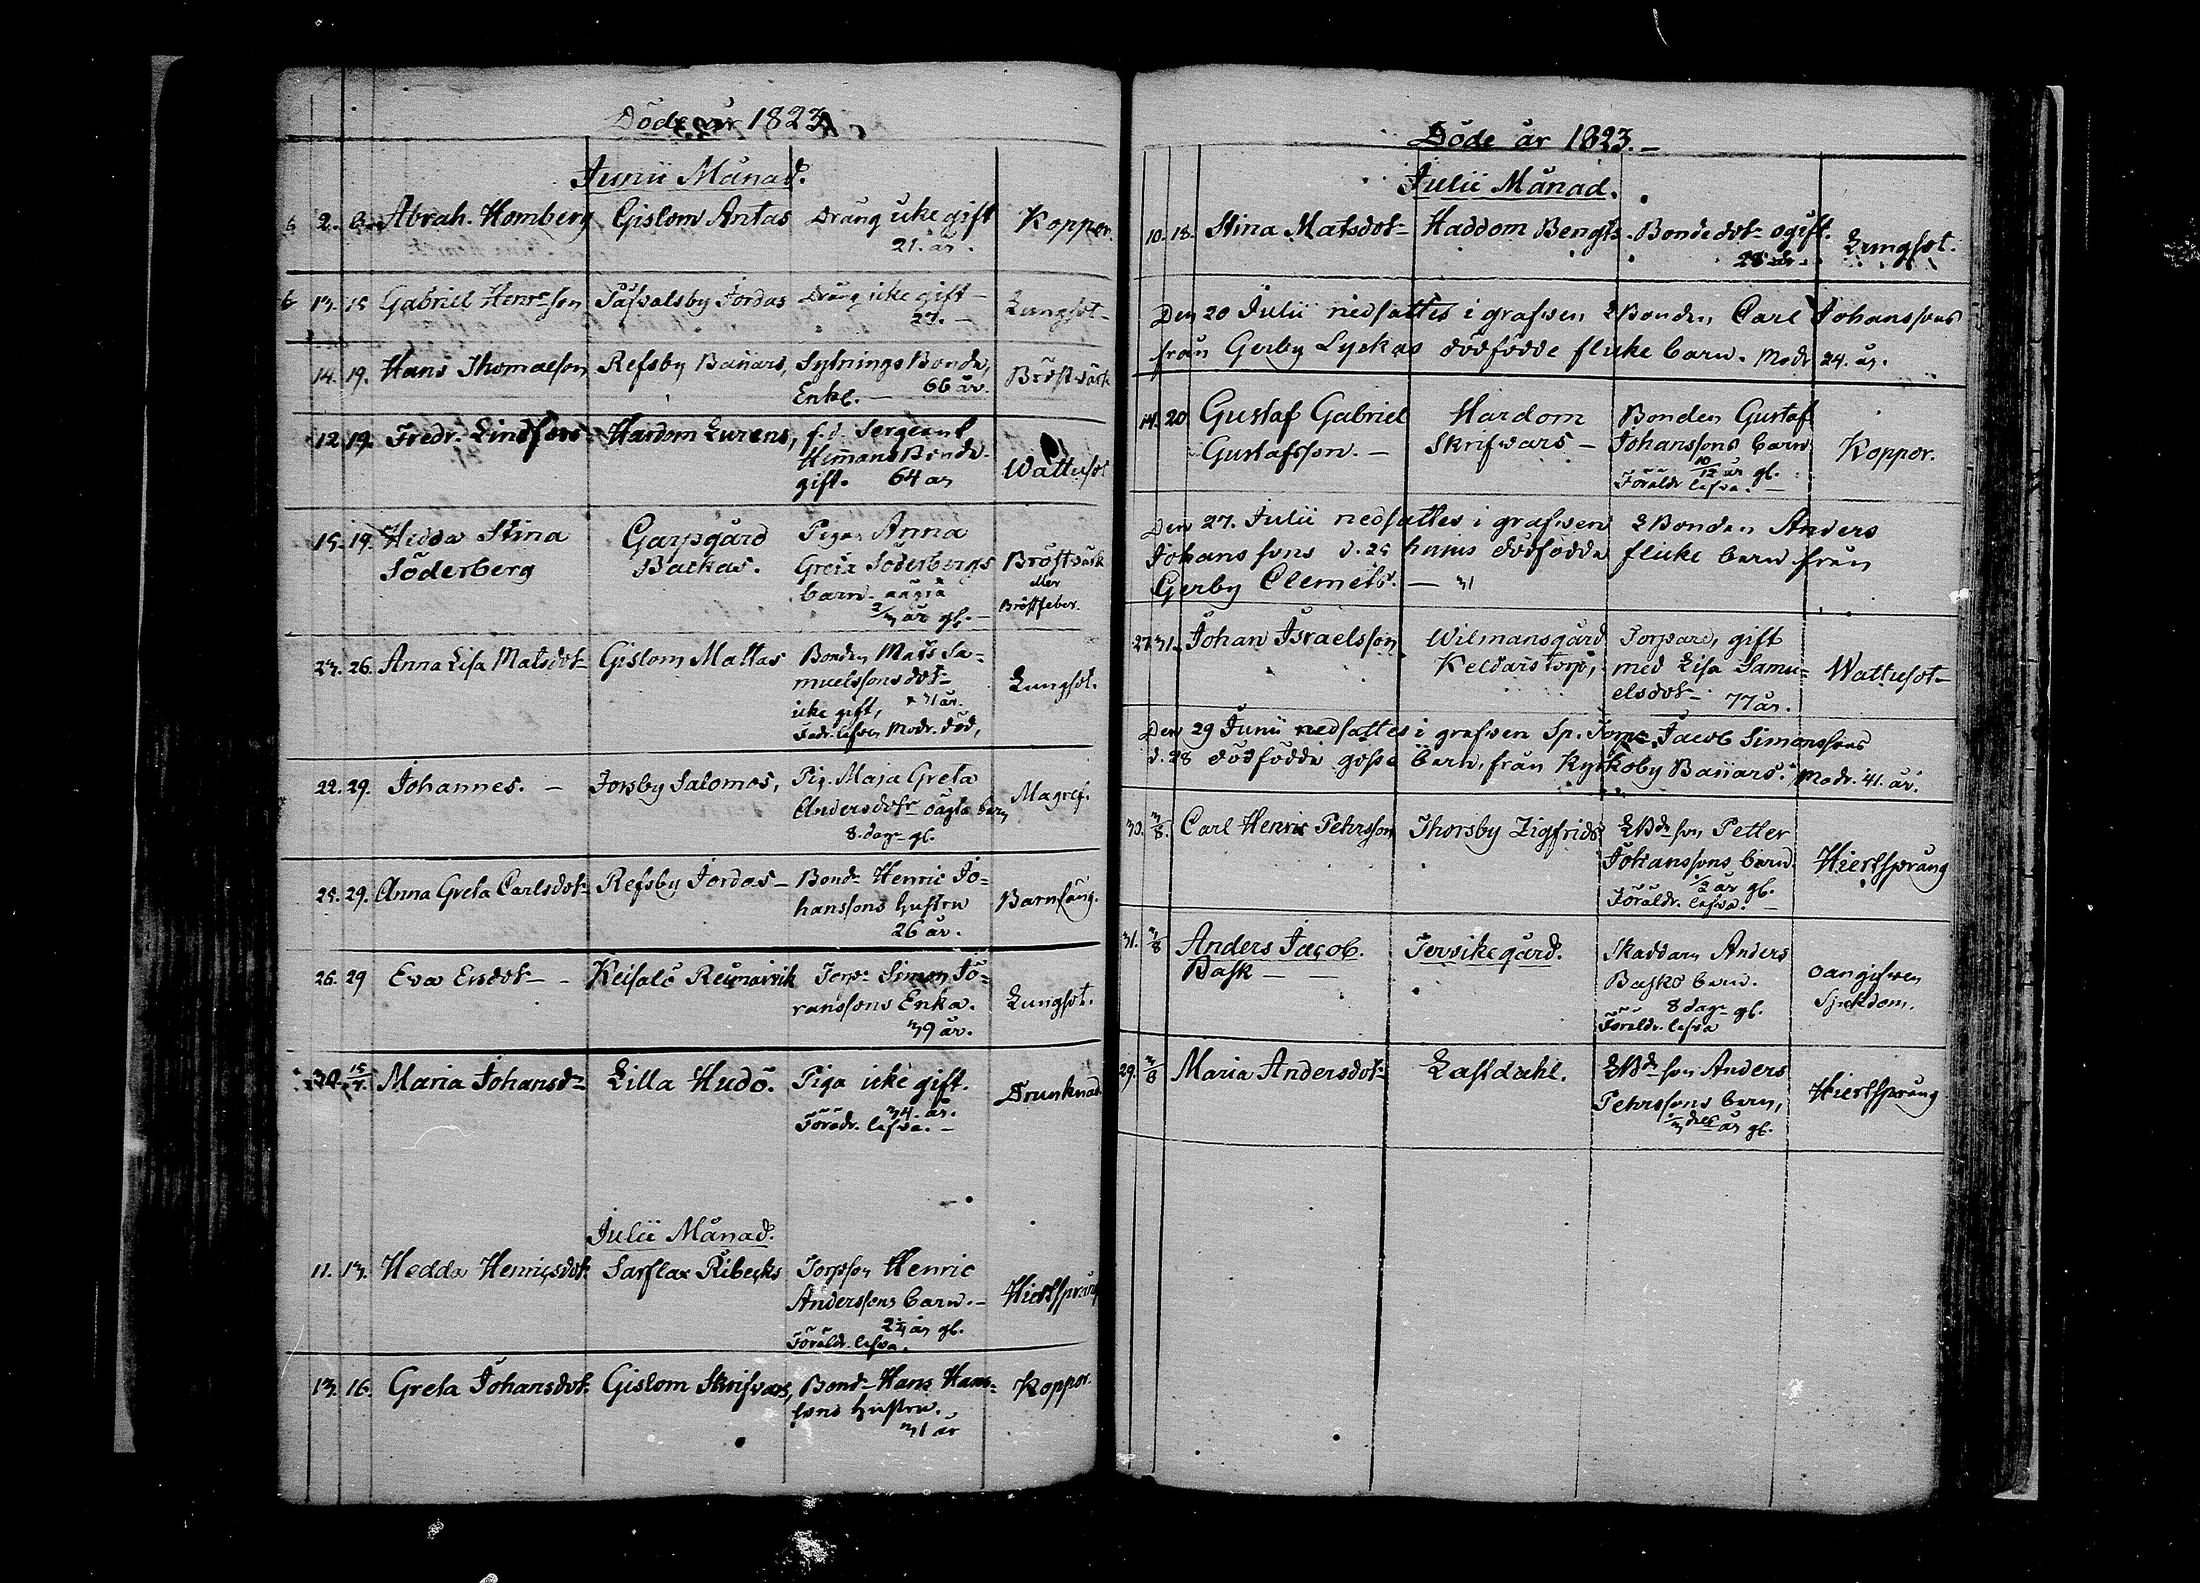 Döde år 1823
Junii Månad.
6 2. 8. Abrah. Homberg Gislom Antas Dräng icke gift Koppor.
21. år.
6 13. 15 Gabriel Henr:son Säfsalsby Jordas Dräng icke gift – Lungsot–
23. –
14. 19. Hans Thomasson Refsby Bañars, Sytnings Bonde, Bröstwärk
Enkl. – 66 år.
12. 19. Fredr. Lindfors Hardom Lurens, f.d. Sergeant Wattusot
Hem̃ans Bonde.
gift. 64 år
15. 19. Hedda Stina Garpgård Pigan Anna Bröstwärk
Söderberg Backas. Greta Söderbergs eller
barn. oägta Bröstfeber.
2/3 år gl. –
23. 26. Anna Lisa Matsdot– Gislom Mattas Bonden Mats Sa= Lungsot.
muelssons dot–
icke gift, 31 år.
Fadr. lefver Modr. död,
22. 29. Johannes. – Torsby Salomos, Pig. Maja Greta Magref.
Andersdotr oägta barn
8. dagr gl.
25. 29. Anna Greta Carlsdot– Refsby Jordas– Bondr Henric Jo= Barnsäng.
hanssons hustru
26 år.
26. 29 Eva Ersdot– – Keisalö Reimarvik Torpr Simon Jö= Lungsot.
ranssons Enka.
39 år.
30. 15/7. Maria Johansdr Lilla Hudö. Piga icke gift. Drunknad.
34. år.
Föräldr. lefva. –
Julii Månad.
11. 13. Hedda Henricsdot. Sarflax Ribecks Torpson Henric Hiertsprång
Anderssons barn. –
2 1/4 år gl.
Föräldr. lefva.
13. 16. Greta Johansdot. Gislom Skrifvars, Bondr Hans Hans= Koppor.
sons hustru.
31 år
Döde år 1823. –
Julii Månad.
10. 18. Stina Matsdot– Haddom Bengts. Bondedotr ogift. Lungsot.
28 år.
Den 20 Julii nedsattes i grafven Bonden Carl Johanssons
från Gerby Lyckas dödfödde flicke barn. Modr 24. år.
14. 20 Gustaf Gabriel Hardom Bonden Gustaf Koppor.
Gustafsson. – Skrifvars – Johanssons barn
10/12 år gl.
Föräldr lefva. –
Den 27. Julii nedsattes i grafven Bonden Anders
Johanssons d. 25 hujus dödfödda flicke barn från
Gerby Clemets. – 31
27 31. Johan Israelsson Wilmansgård Torpare, gift Wattusot–
Keldars torp, med Lisa Samu=
elsdot– 77 år.
Den 29 Junii nedsattes i grafven Sp. Torpr Jacob Simonssons
d. 28 dödfödda gosse barn, från Kyrkoby Bañars. Modr. 41. år.
30. 3/8. Carl Henric Pehrsson Thorsby Zigfrids Bdeson Petter Hiertsprång
Johanssons barn
1/2 år gl.
Föräldr. lefva.
31. 3/8 Anders Jacob. Tervikegård. Skaddarn Anders oangifven
Bask – – Basks barn. Sjukdom.
8 dagr gl.
Föräldr. lefva
29. 3/8 Maria Andersdot– Lastdahl. Bdeson Anders Hiertsprång
Pehrssons barn,
1/3 dels år gl.